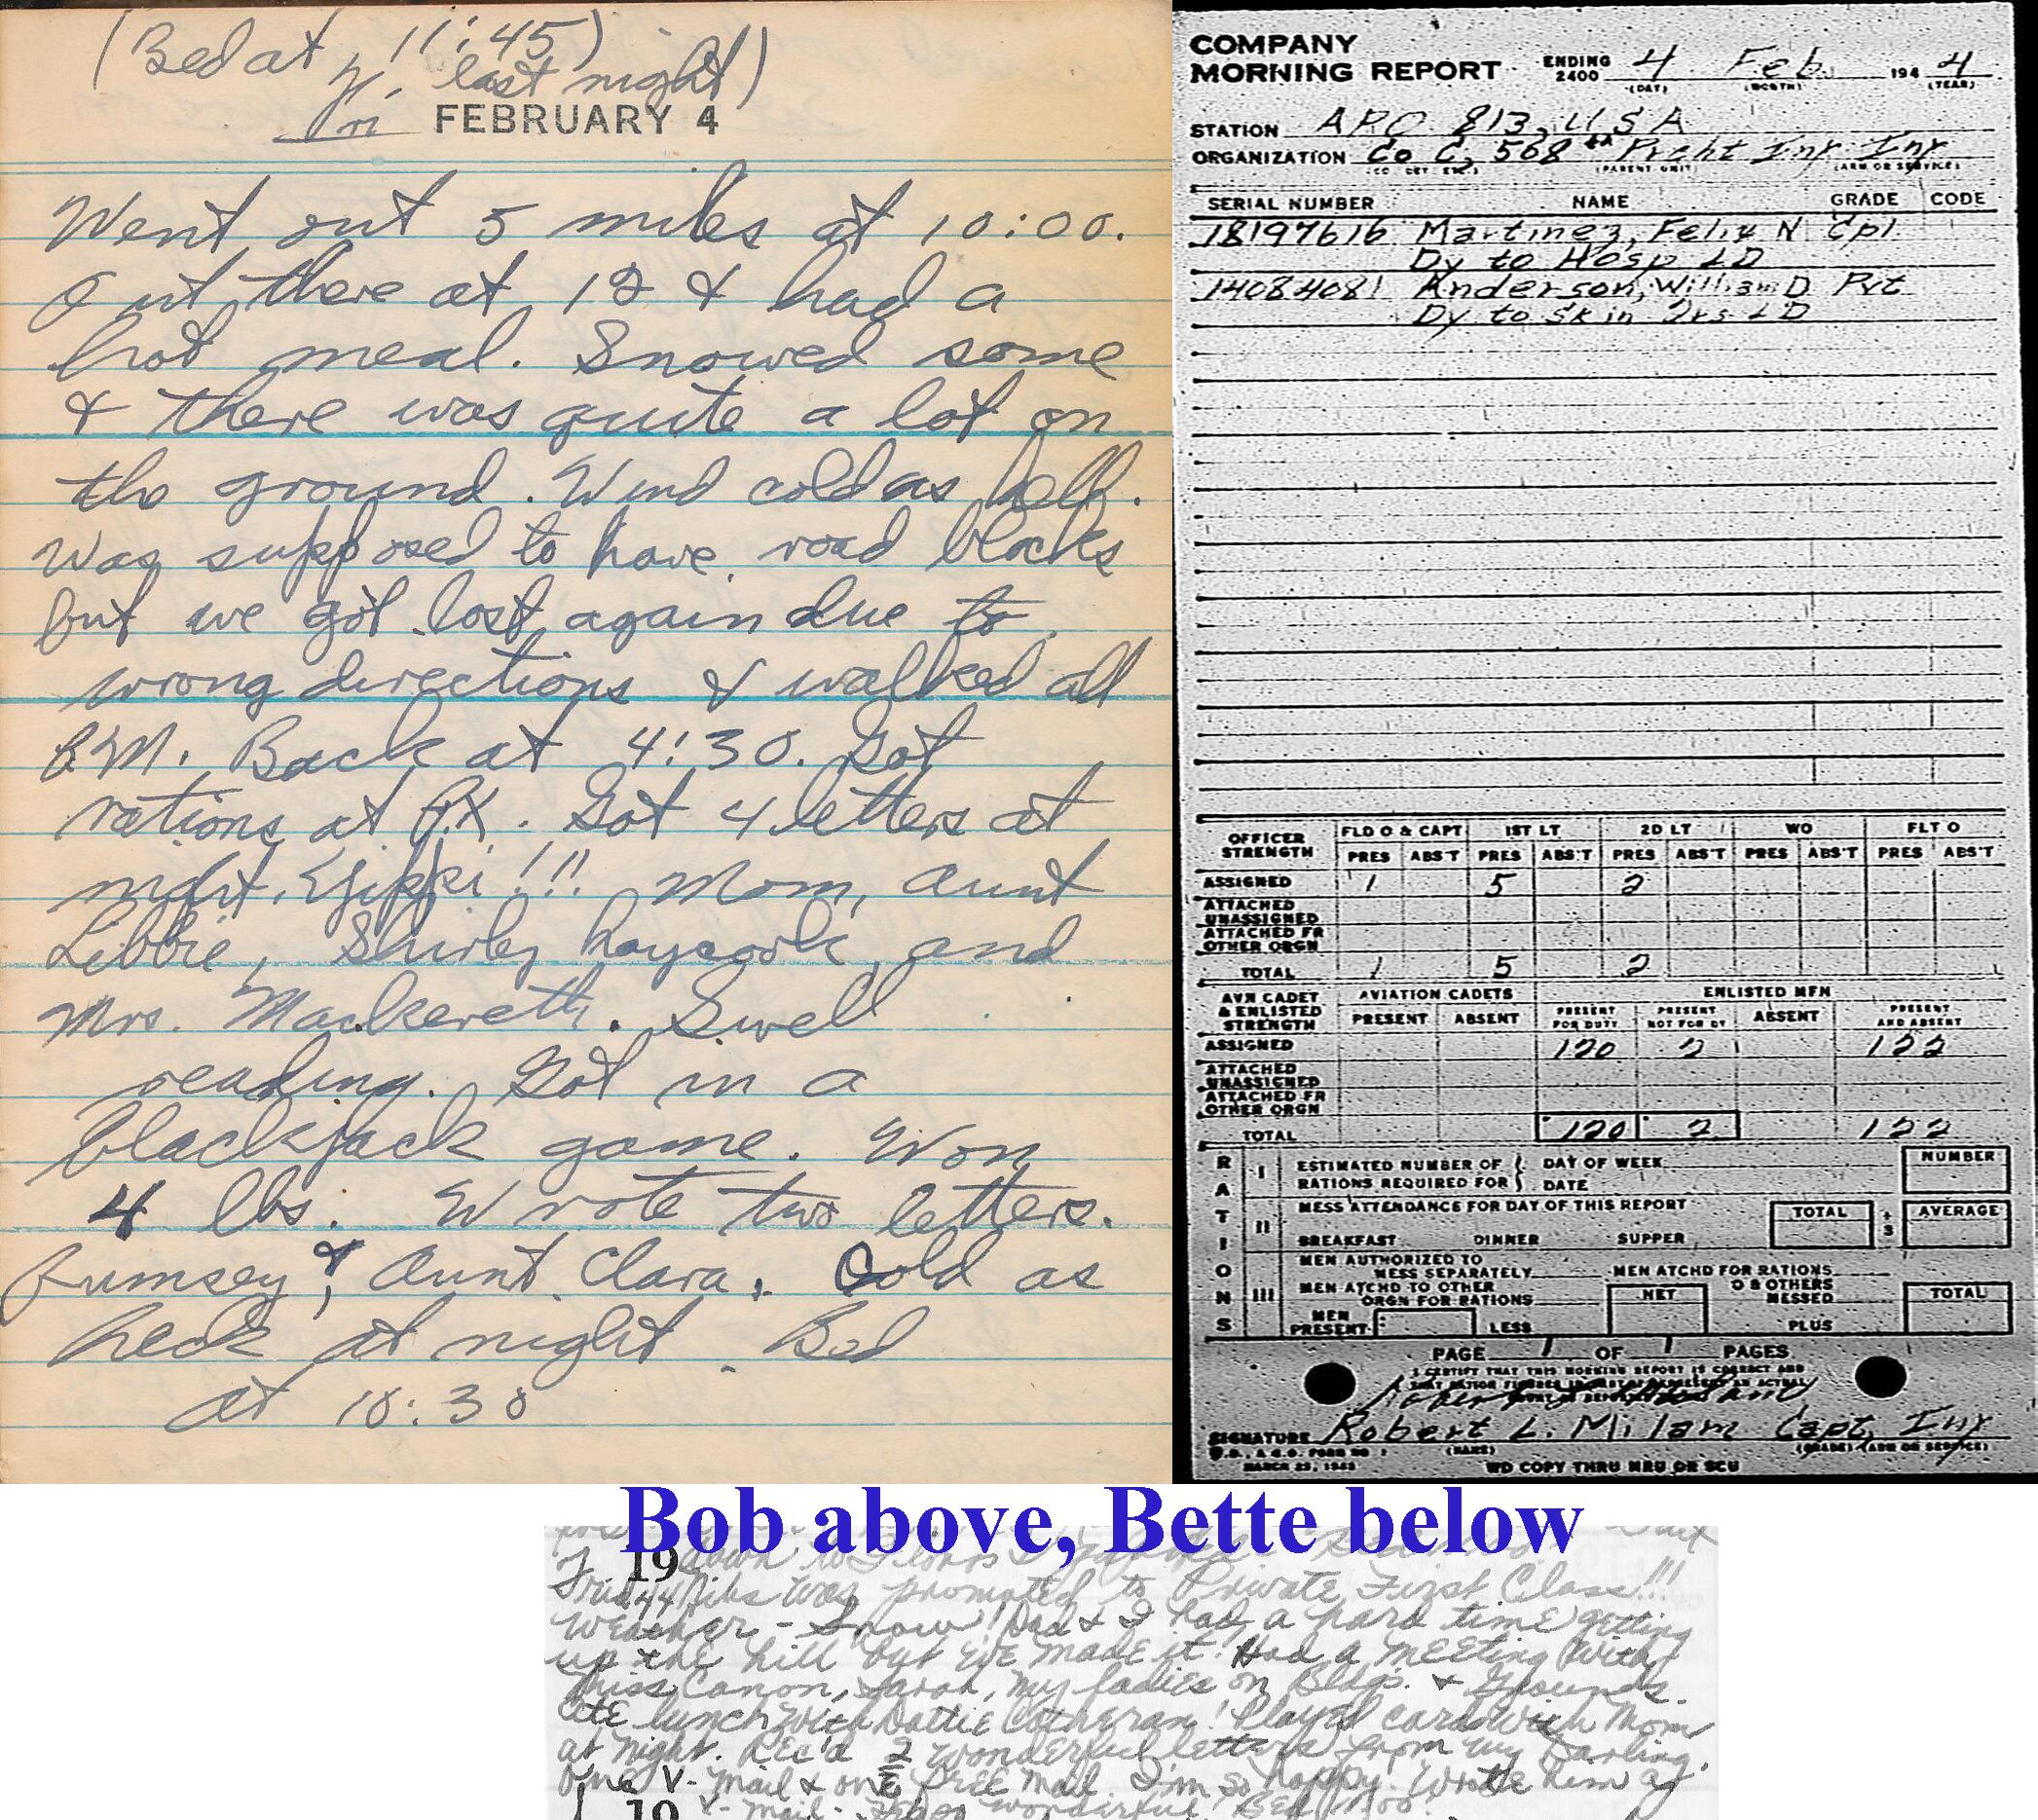 (Bed at 11:45)
last night)
FEBRUARY 4
Went out 5 miles at 10:00.
Out there at 12 & had a
hot meal. Snowed some
& there was quite a lot on
the ground. Wind cold as hell.
Was supposed to have road blocks
but we got lost again due to
wrong directions & walked all
P.M. Back at 4:30. Got
rations at P.X. Got 4 letters at
night. Yippi!!! Mom, Aunt
Libbie, Shirley Laycock, and
Mrs. Mackereth. Swell
reading. Got in a
blackjack game. Won
4 lbs. Wrote two letters.
Rumsey & Aunt Clara. Cold as
heck at night. Bed
at 10:30
COMPANY
MORNING REPORT ENDING 2400 4 Feb. 194 4
(DAY) (MONTH) (YEAR)
STATION APO 813, USA
ORGANIZATION Co C, 568th Prcht Inf Inf
(CO DET ETC.) (PARENT UNIT) (ARM OR SERVICE)
SERIAL NUMBER NAME GRADE CODE
18197616 Martinez, Felix N Cpl
Dy to Hosp LD
14084081 Anderson, William D Pvt
Dy to Sk in Qrs LD
OFFICER STRENGTH FLD O & CAPT 1ST LT 2D LT WO FLT O
PRES ABS'T PRES ABS'T PRES ABS'T PRES ABS'T PRES ABS'T
ASSIGNED 1 5 2
ATTACHED UNASSIGNED
ATTACHED FR OTHER ORGN
TOTAL 1 5 2
AVN CADET & ENLISTED STRENGTH AVIATION CADETS ENLISTED MEN
PRESENT ABSENT PRESENT FOR DUTY PRESENT NOT FOR DY ABSENT PRESENT AND ABSENT
ASSIGNED 120 2 122
ATTACHED UNASSIGNED
ATTACHED FR OTHER ORGN
TOTAL 120 2 122
RATIONS
I ESTIMATED NUMBER OF RATIONS REQUIRED FOR DAY OF WEEK DATE NUMBER
II MESS ATTENDANCE FOR DAY OF THIS REPORT TOTAL ÷ 3 AVERAGE
BREAKFAST DINNER SUPPER
III MEN AUTHORIZED TO MESS SEPARATELY MEN ATCHD FOR RATIONS
MEN ATCHD TO OTHER ORGN FOR RATIONS NET O & OTHERS MESSED TOTAL
MEN PRESENT LESS PLUS
PAGE 1 OF 1 PAGES
I CERTIFY THAT THIS MORNING REPORT IS CORRECT AND
SIGNATURE Robert L. Milam Capt, Inf
(NAME) (GRADE) (ARM OR SERVICE)
W.D., A.G.O. FORM NO 1
MARCH 23, 1943 WD COPY THRU MRU OR SCU
Bob above, Bette below
19 down to
44 was promoted to Private First Class!!!
Weather - Snow! Dad & I had a hard time getting
up the hill but we made it! Had a meeting with
Miss Canon, Sarah, my ladies on Bldgs. & Grounds.
Ate lunch with Dottie Cothran! Played cards with Mom
at night. Rec'd 2 wonderful letters from my Darling.
One V-mail & one free mail. I'm so happy. Wrote him a
19 V-mail. wonderful!